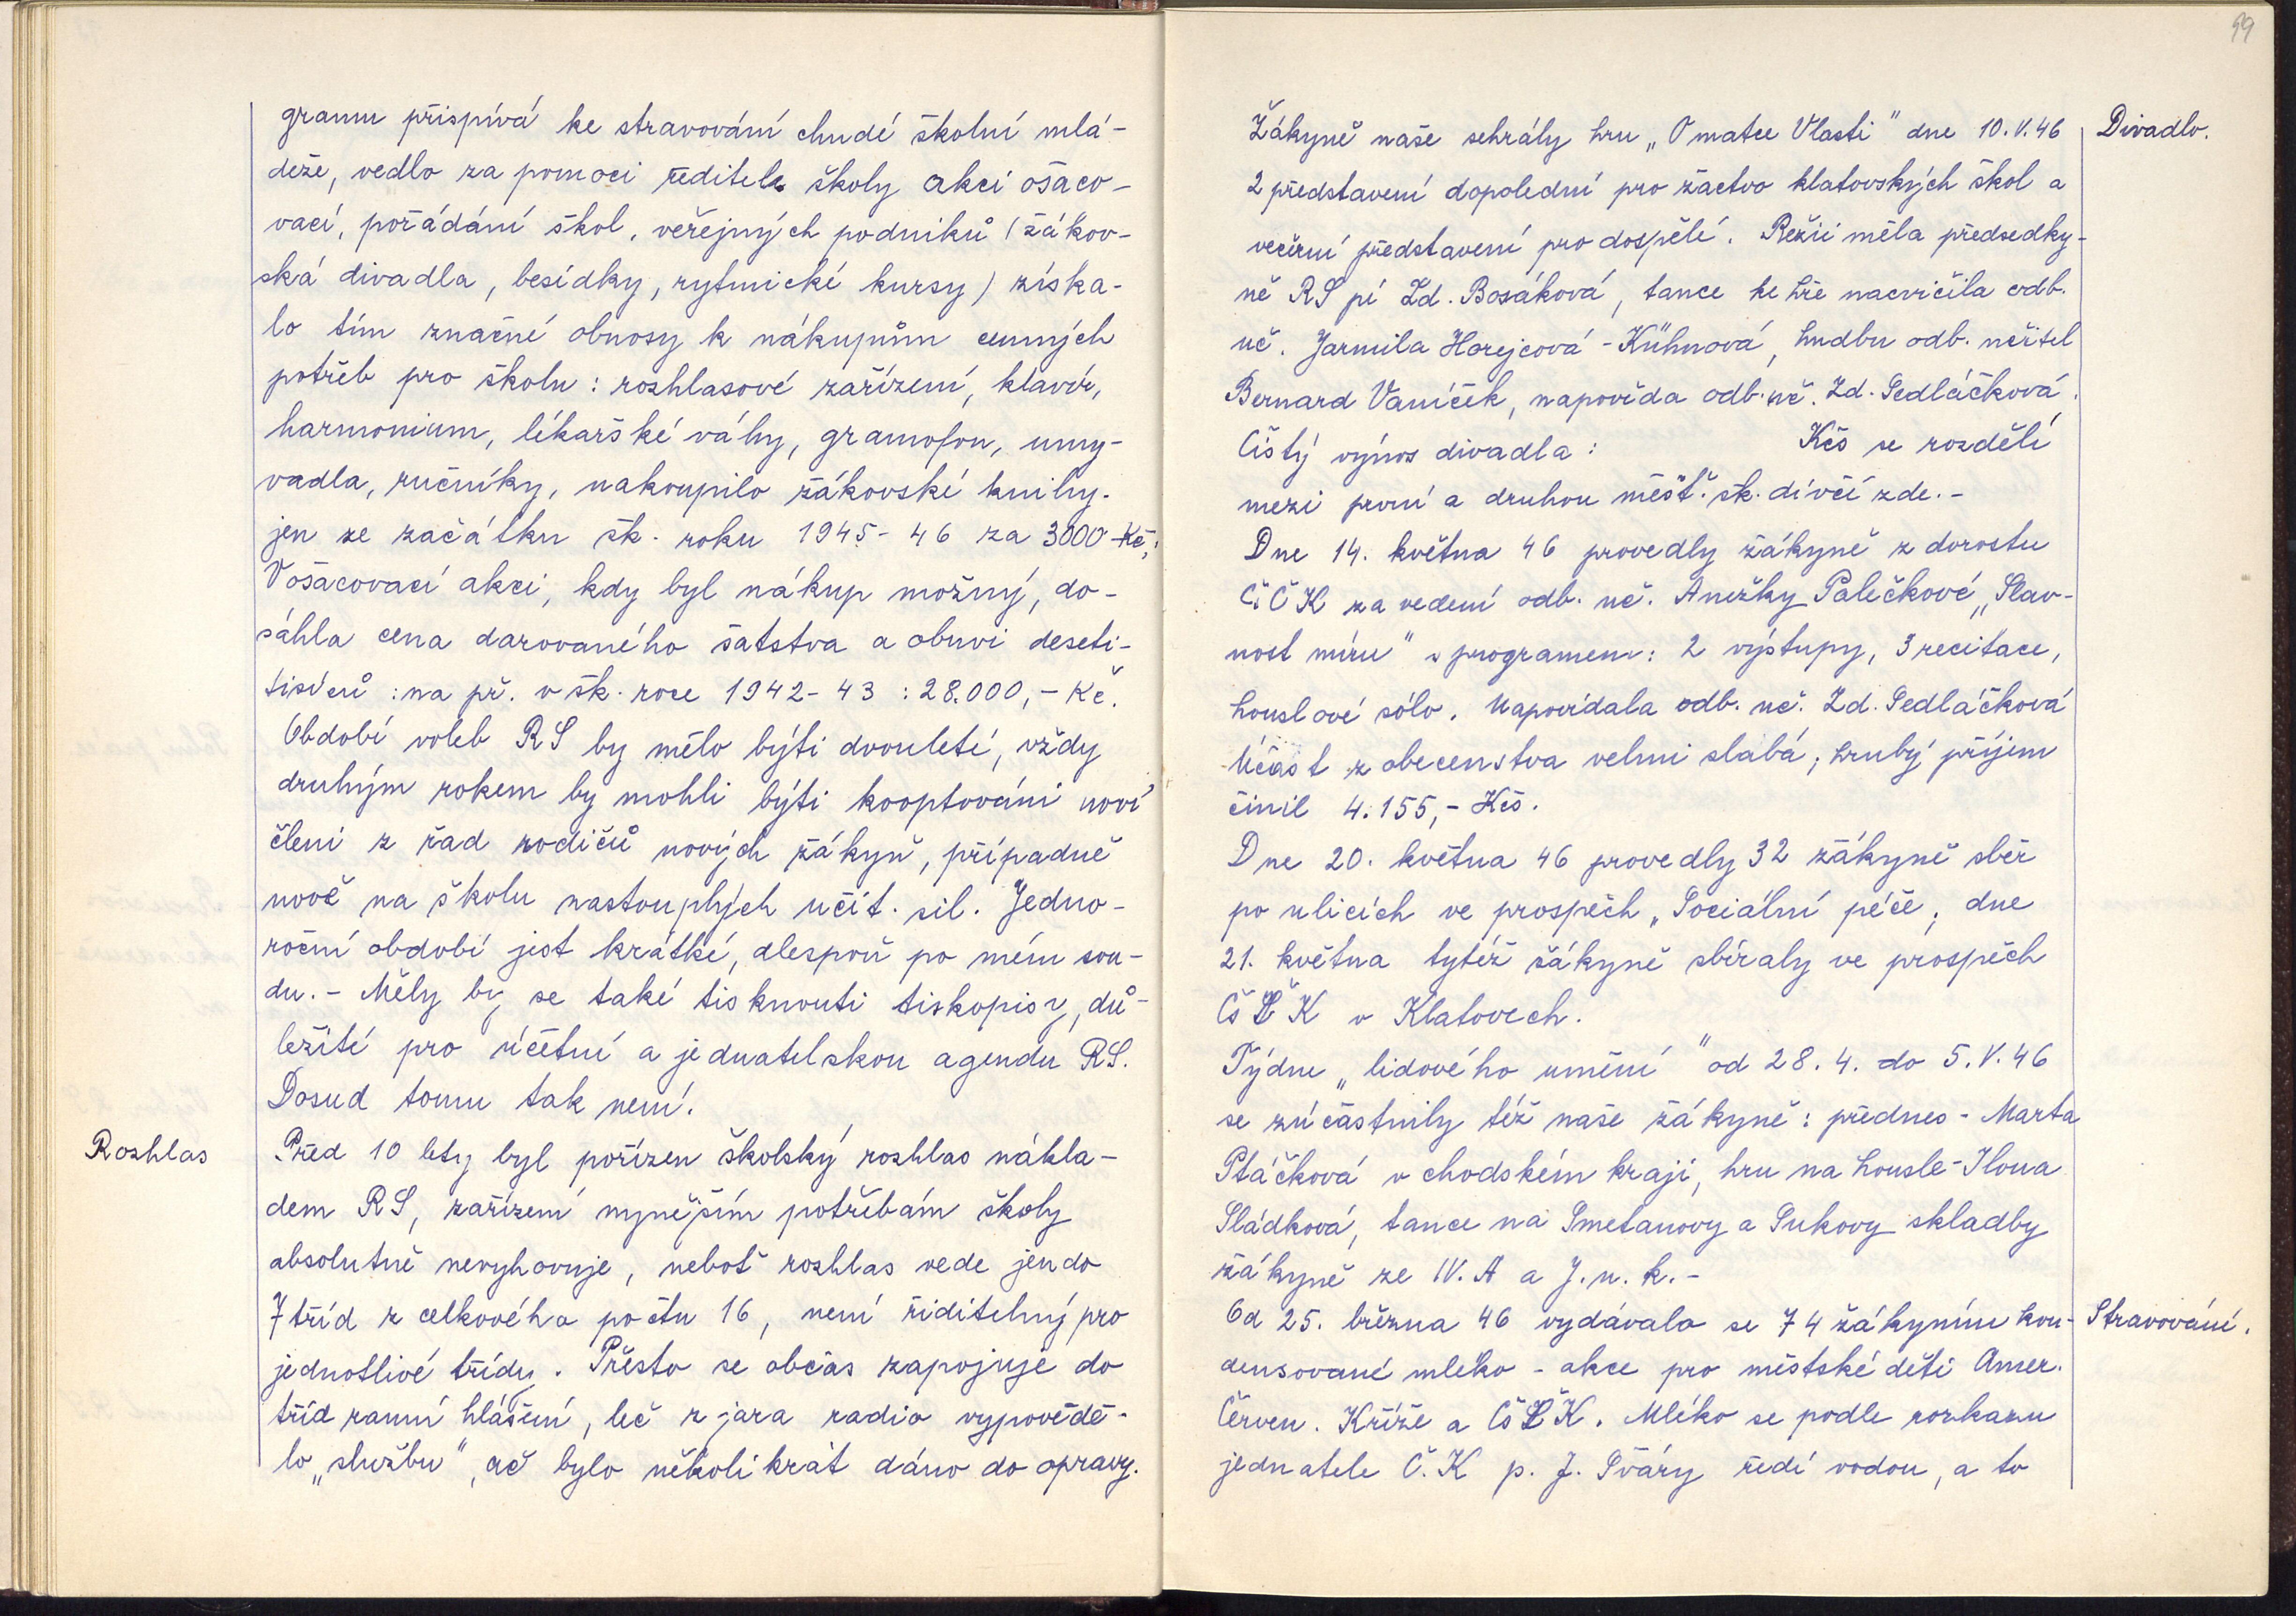 gramu přispívá ke stravování chudé školní mlá-
deže, vedlo za pomoci ředitele školy akci ošaco-
vací, pořádání škol. veřejných podniků (žákov-
ská divadla, besídky, rytmické kursy) získa-
lo tím značné obnosy k nákupům cenných
potřeb pro školu: rozhlasové zařízení, klavír,
harmonium, lékařské váhy, gramofon, umy-
vadla, ručníky, nakoupilo žákovské knihy.
jen ze začátku šk. roku 1945-46 za 3000 Kč.
V ošacovací akci, kdy byl nákup možný, do-
sáhla cena darovaného šatstva a obuvi deseti-
tisíců: na př. v šk. roce 1942-43: 28.000,- Kč.
Období voleb RS by mělo býti dvouleté, vždy
druhým rokem by mohli býti kooptováni noví
členi z řad rodičů nových žákyň, případně
nově na školu nastouplých učit. sil. Jedno-
roční období jest krátké, alespoň po mém sou-
du.- Měly by se také tisknouti tiskopisy, dů-
ležité pro účetní a jednatelskou agendu RS.
Dosud tomu tak není.
Rozhlas
Před 10 lety byl pořízen školský rozhlas nákla-
dem RS, zařízení nynějším potřebám školy
absolutně nevyhovuje, neboť rozhlas vede jen do
7 tříd z celkového počtu 16, není řiditelný pro
jednotlivé třídy. Přesto se občas zapojuje do
tříd ranní hlášení, leč z jara radio vypovědě-
lo „službu", ač bylo několikrát dáno do opravy.
99
Divadlo.
Žákyně naše sehrály hru „O matce Vlasti" dne 10.V.46
2 představení dopolední pro žactvo klatovských škol a
večerní představení pro dospělé. Režii měla předsedky-
ně RS pí Zd. Bosáková, tance ke hře nacvičila odb.
uč. Jarmila Horejcová-Kühnová, hudbu odb. učitel
Bernard Vaníček, napověda odb. uč. Zd. Sedláčková.
Čistý výnos divadla: Kčs se rozdělí
mezi první a druhou měšť. šk. dívčí zde.-
Dne 14. května 46 provedly žákyně z dorostu
ČČK za vedení odb. uč. Anežky Palečkové „Slav-
nost míru" s programem: 2 výstupy, 3 recitace,
houslové sólo. Napovídala odb. uč. Zd. Sedláčková
Účast z obecenstva velmi slabá; hrubý příjem
činil 4.155,- Kčs.
Dne 20. května 46 provedly 32 žákyně sběr
po ulicích ve prospěch „Sociální péče, dne
21. května tytéž žákyně sbíraly ve prospěch
ČsČK v Klatovech.
Týdnu „lidového umění" od 28.4. do 5.V.46
se zúčastnily též naše žákyně: přednes - Marta
Ptáčková v chodském kraji, hru na housle - Ilona
Sládková, tance na Smetanovy a Sukovy skladby
žákyně ze IV. A a J. n. k.-
Stravování.
Od 25. března 46 vydávalo se 74 žákyním kon-
densované mléko - akce pro městské děti Amer.
Červen. Kříže a ČsČK. Mléko se podle rozkazu
jednatele Č.K p. J. Sváry ředí vodou, a to